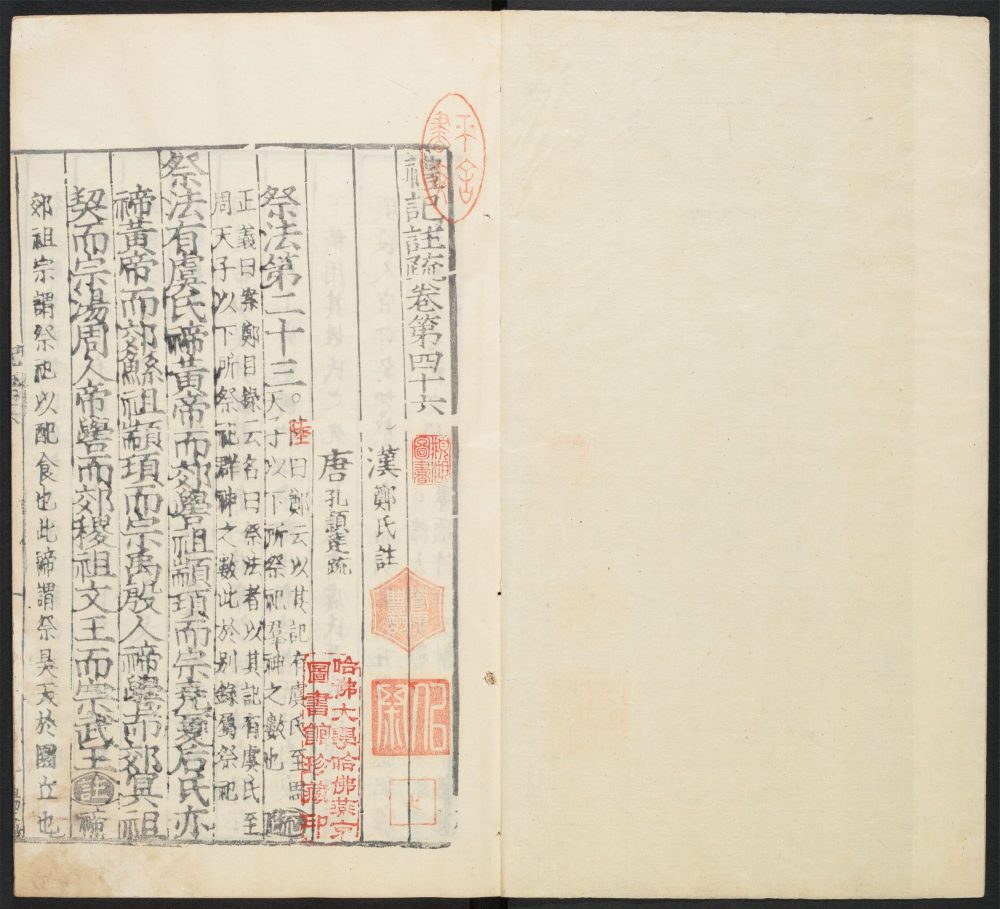 禮記註疏卷第四十六
漢鄭氏註
唐孔穎達疏
祭法第二十三。陸曰鄭云以其記有虞氏至周天子以下所祭祀羣神之數也疏
正義曰案鄭目錄云名曰祭法者以其記有虞氏至
周天子以下所祭祀群神之數此於別錄屬祭祀
祭法有虞氏禘黃帝而郊嚳祖顓頊而宗堯夏后氏亦
禘黃帝而郊鯀祖顓頊而宗禹殷人禘嚳而郊冥祖
契而宗湯周人帝嚳而郊稷祖文王而宗武王註禘
郊祖宗謂祭祀以配食也此禘謂祭昊天於圜丘也
哈佛大學哈佛燕京
圖書館珍藏印